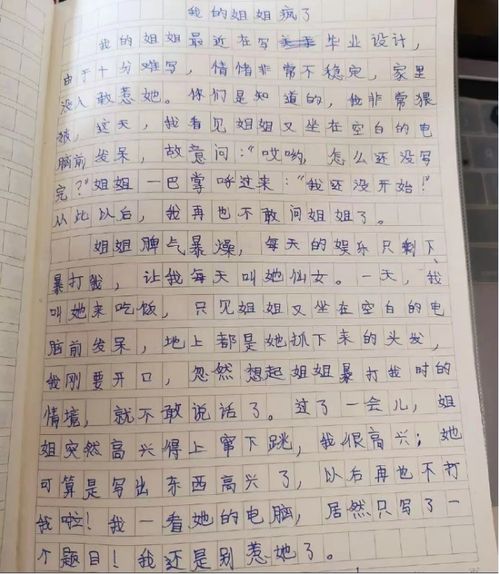 我的姐姐疯了
我的姐姐最近在写毕业设计，
由于十分难写，情绪非常不稳定，家里
没人敢惹她。你们是知道的，我非常猥
琐，这天，我看见姐姐又坐在空白的电
脑前发呆，故意问："哎哟，怎么还没写
完？"姐姐一巴掌呼过来："我还没开始！"
从此以后，我再也不敢问姐姐了。
姐姐脾气暴燥，每天的娱乐只剩下
暴打我，让我每天叫她仙女。一天，我
叫她来吃饭，只见姐姐又坐在空白的电
脑前发呆，地上都是她抓下来的头发，
我刚要开口，忽然想起姐姐暴打我时的
情境，就不敢说话了。过了一会儿，姐
姐突然高兴得上窜下跳，我很高兴；她
可算是写出东西高兴了，以后再也不打
我啦！我一看她的电脑，居然只写了一
个题目！我还是别惹她了。